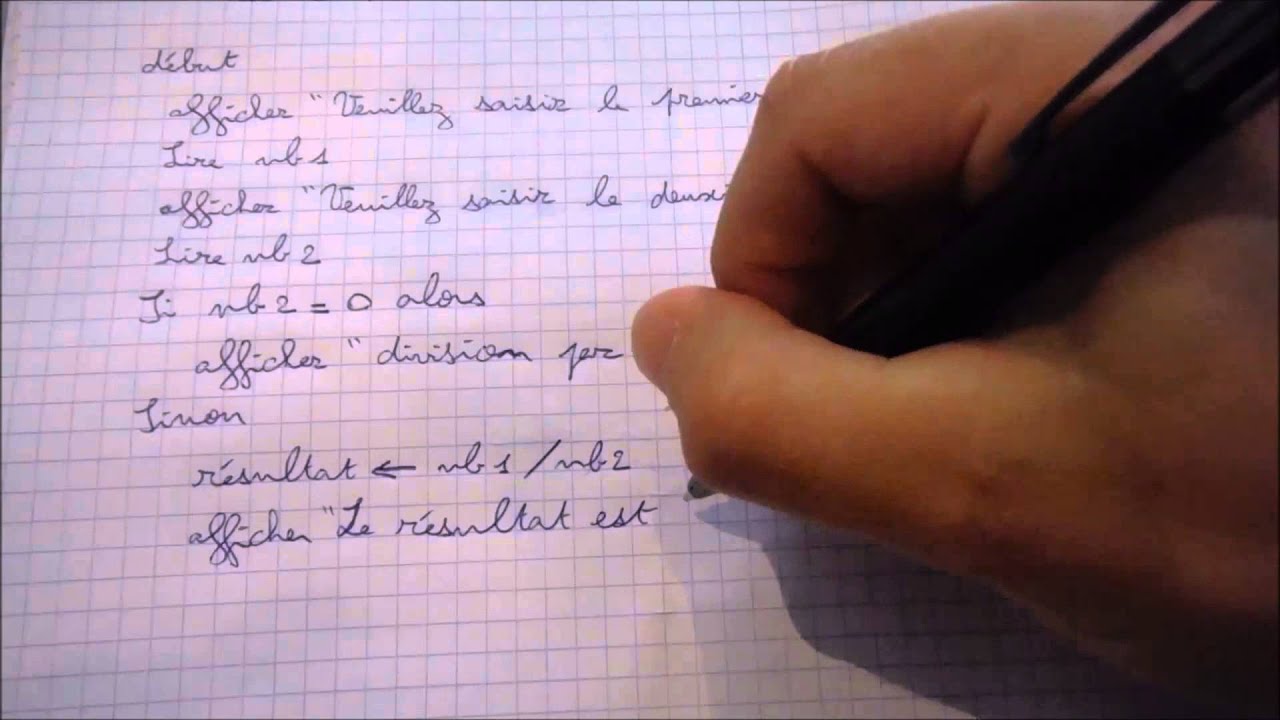 début
afficher "Veuillez saisir le premier
Lire nb1
afficher "Veuillez saisir le
Lire nb2
Si nb2 = 0 alors
afficher "division par
Sinon
résultat ← nb1/nb2
afficher "Le résultat est